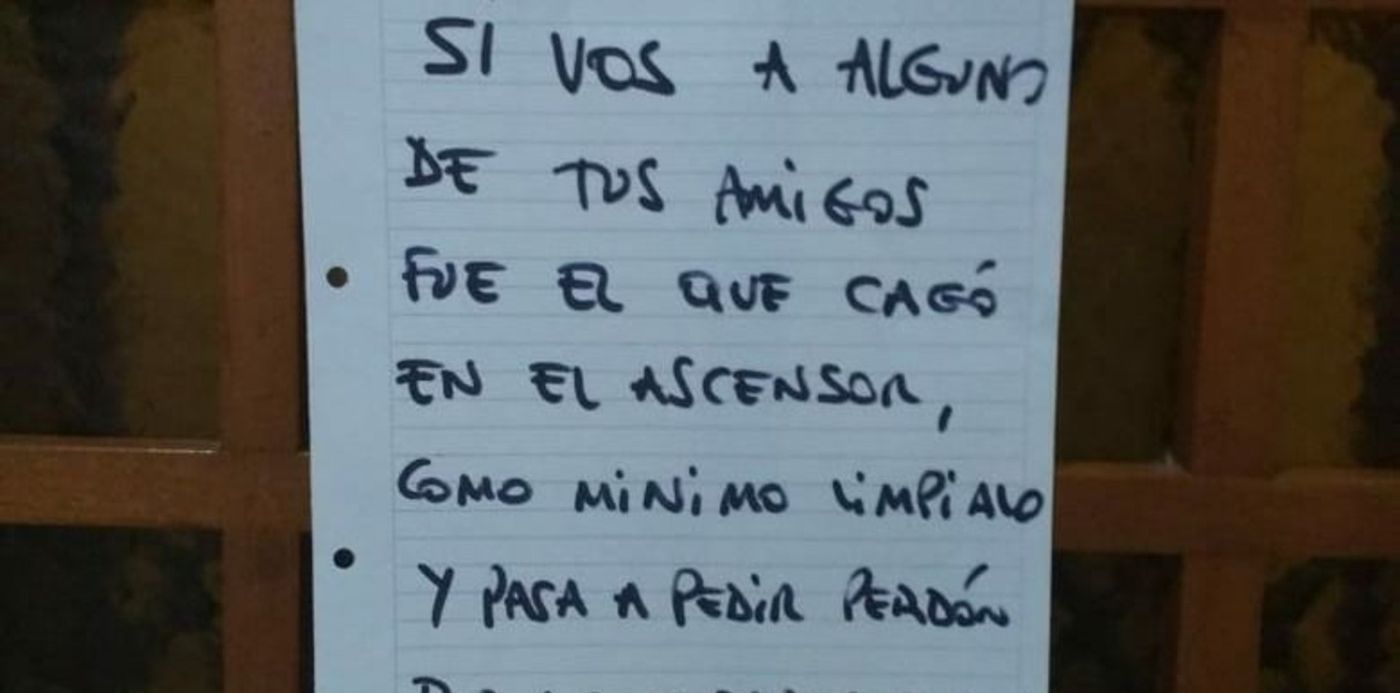 SI VOS A ALGUNO
DE TUS AMIGOS
FUE EL QUE CAGÓ
EN EL ASCENSOR,
COMO MINIMO LIMPIALO
Y PASA A PEDIR PERDÓN